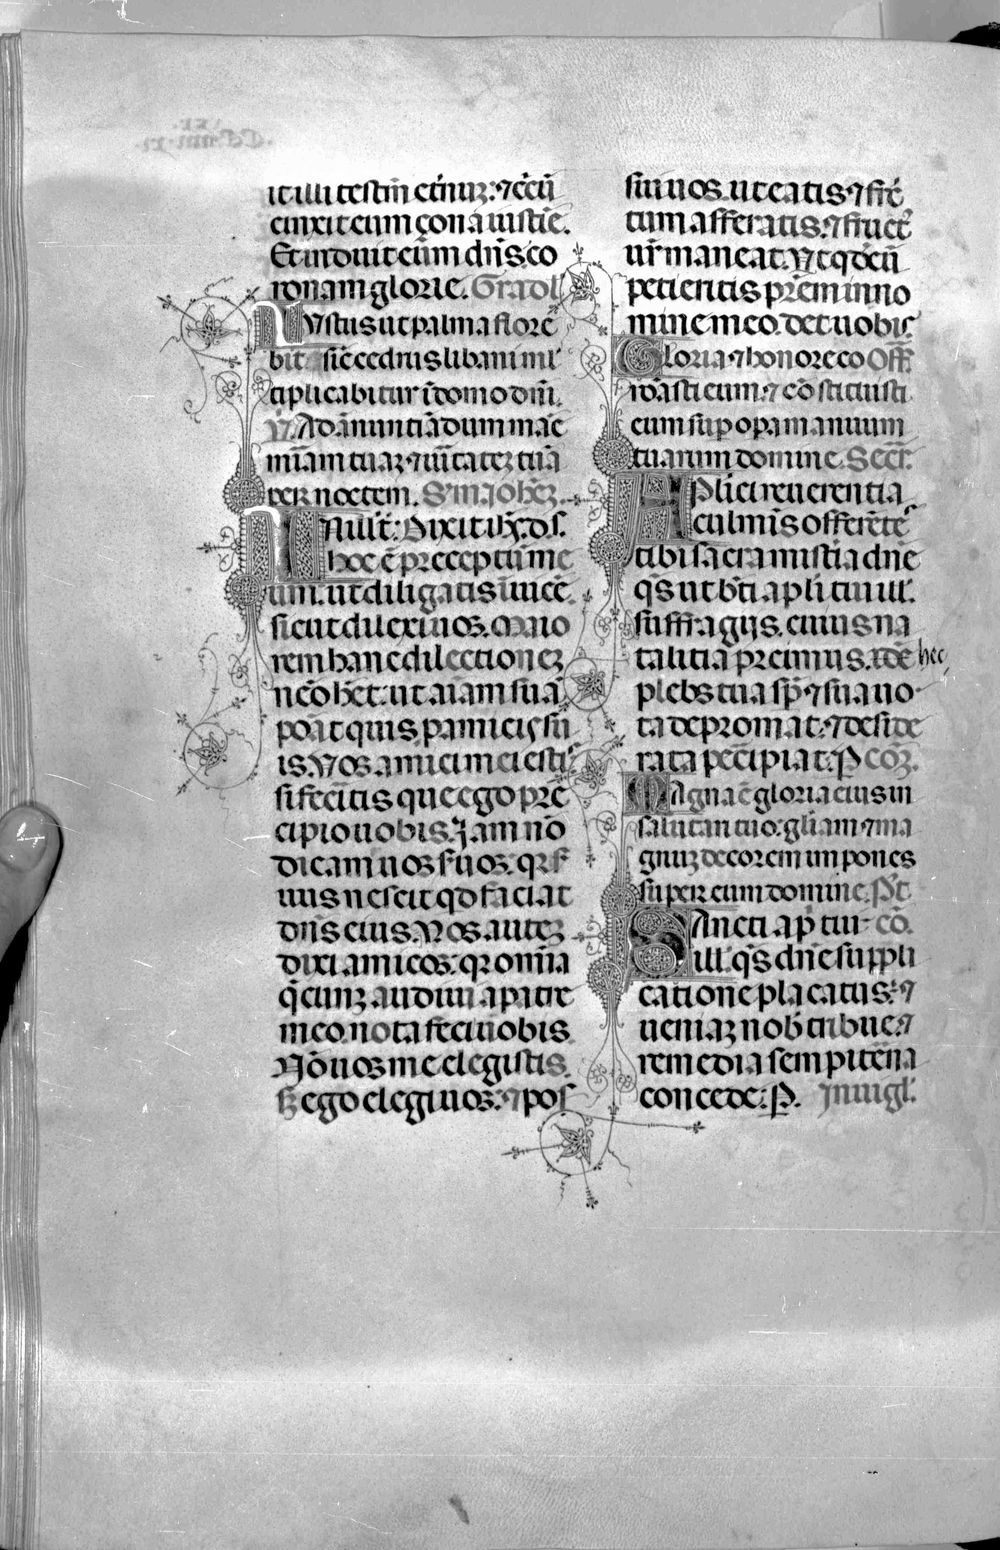 it illi testm̄ et̄nuz: ⁊ c̄cū
cinxit eum çona iustic̄.
Et induit eum dn̄s. co
ronam glorie. Gradl̄
Iustus ut palma flore
bit sic̄ cedrus libani ml̄
tiplicabitur ī domo dn̄i.
V̄. Ad ānuntiādum mānc̄
mīam tuaz ⁊ uītatez tuā
per noctem. S. m̄ Johēz.
In illo t̄: Dixit ih̄s. d. s.
hoc ē preceptū me
um. ut diligatis īuicē
sicut dilexi uos. Maio
rem hanc dilectionez
nēo h̄et. ut aīam suā
ponat quis p amicis su
is. Vos amici mei estis
si fecītis que ego pre
cipio uobis. Jam nō
dicam uos s̄uos. qr s̄
uus nescit qd faciat
dn̄s eius. Vos autez
dixi amicos. qr omīa
q̄cunz audiui a patre
meo. nota feci uobis
Nō uos me elegistis.
sz ego elegi uos. ⁊ pos
sui uos. ut eatis ⁊ frc̄
tum afferatis. ⁊ fruct̄
ur̄ maneat. Vt qdcū
petieritis p̄rem in no
mine meo. det uobis
Gloria ⁊ honore co Off̄
ronasti eum. ⁊ cōstituisti
eum sup opa manuum
tuarum domine. Secr̄.
Aplici reuerentia
culminis offerētes
tibi sacra misteria dne
qs ut bt̄i apli tui ill̄.
suffragijs. cuius na
talitia preimus. hec
plebs tua sp̄ ⁊ sua uo
ta depromat. ⁊ deside
rata pec̄ipiat. P̄ cōz.
Magna ē gloria eius in
salutari tuo. gl̄iam ⁊ ma
gnuz decorem impones
super eum domine. P̄t
Sancti apl̄i tui cō.
ill̄. qs dn̄e suppli
catione placatus. ⁊
ueniaz nob̄ tribue. ⁊
remedia sempit̄na
concede. P̄. In uigl̄.